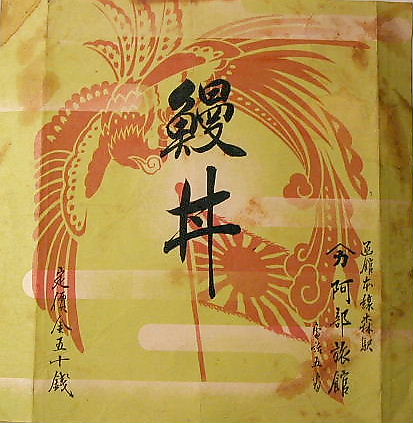 函館本線森駅
阿部旅館
電話五番
鰻丼
定價金五十錢